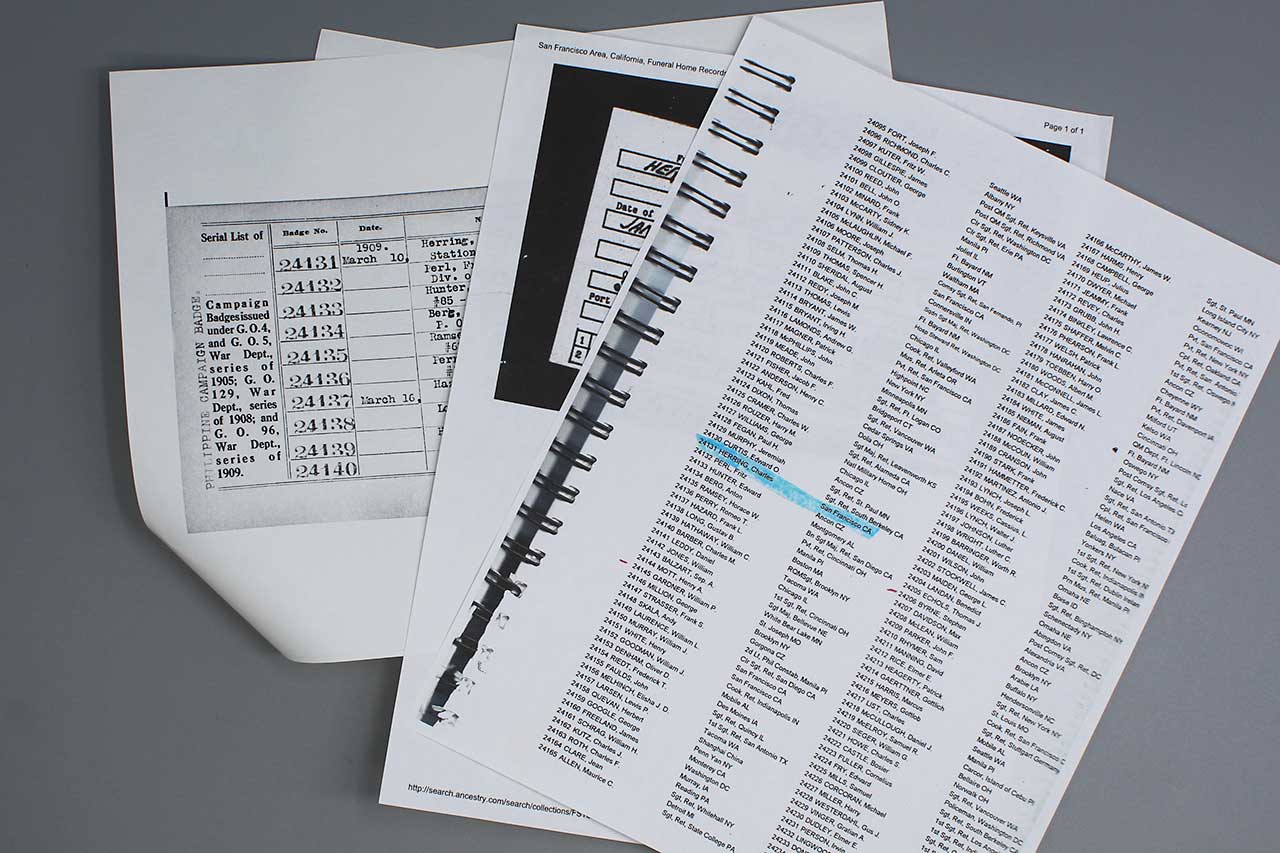 PHILIPPINE CAMPAIGN BADGE.
Serial List of
Campaign
Badges issued
under G. O. 4,
and G. O. 5,
War Dept.,
series of
1905; G. O.
129, War
Dept., series
of 1908; and
G. O. 96,
War Dept.,
series of
1909.
Badge No.
24131
24132
24133
24134
24135
24136
24137
24138
24139
24140
Date.
1909.
March 10,
March 16,
Herring,
Station
Perl,
Div. o
Hunter
Berg,
P. O
Ramse
San Francisco Area, California, Funeral Home Records
Page 1 of 1
HER
Date of
JAN
Port
1
2
http://search.ancestry.com/search/collections/FS
24095 FORT, Joseph F.
24096 RICHMOND, Charles C.
24097 KUTER, Fritz W.
24098 GILLESPIE, James
24099 CLOUTIER, George
24100 REED, John
24101 BELL, John O.
24102 MINARD, Frank
24103 McCARTY, Sidney K.
24104 LYNN, William J.
24105 McLAUGHLIN, Michael F.
24106 MOORE, Joseph
24107 PATTERSON, Charles J.
24108 SELM, Thomas H.
24109 THOMAS, Spencer H.
24110 SHERIDAL, August
24111 BLAKE, John C.
24112 REIDY, Joseph M.
24113 THOMAS, Lewis
24114 BRYANT, James W.
24115 BRYANS, Irvine G.
24116 LAMONDS, Andrew
24117 MAGNER, Patrick
24118 McPHILLIPS, John
24119 MEADE, John
24120 ROBERTS, Charles F.
24121 FISHER, Jacob F.
24122 ANDERSON, Henry C.
24123 KAHL, Fred
24124 DIXON, Thomas
24125 CRAMER, Charles W.
24126 ROUZER, Harry M.
24127 WILLIAMS, George
24128 FEGAN, Paul H.
24129 MURPHY, Jeremiah
24130 CURTIS, Edward O.
24131 HERRING, Charles
24132 PERL, Fritz
24133 HUNTER, Edward
24134 BERG, Anton
24135 RAMSEY, Horace W.
24136 PERRY, Romeo T.
24137 HAZARD, Frank L.
24138 LONG, Gustav B.
24139 HATHAWAY, William C.
24140 BARBER, Charles M.
24141 LEDDY, Daniel
24142 JONES, William
24143 BALZART, Sep. A.
24144 MOTT, Henry A.
24145 GARDNER, William P.
24146 MILLION, George
24147 STRASSER, Frank S.
24148 SKALA, Andy
24149 LAURENCE, William L.
24150 MURRAY, William J.
24151 WHITE, Henry
24152 GOODMAN, William J.
24153 DENHAM, Oliver D.
24154 RIEDT, Frederick T.
24155 FAULDS, John
24156 MELHINCH, Elisha J. D.
24157 LARSEN, Lewis P.
24158 QUEVAN, Herbert
24159 GOOGLE, George
24160 FREELAND, James
24161 SOHRAG, William H.
24162 KUTZ, Charles J.
24163 ROTH, Charles F.
24164 CLARE, Jean
24165 ALLEN, Maurice C.
Seattle WA
Albany NY
Post QM Sgt, Keysville VA
Post QM Sgt, Ret, Richmond VA
Clr Sgt, Ret, Washington DC
Clr Sgt, Ret, Erie PA
Manila PI
Joliet IL
Ft. Bayard NM
Burlington VT
Waltham MA
San Francisco CA
Connersville IN
Ft. Bayard NM
Chicago IL
Cook, Ret, Valleyford WA
Mus, Ret, Arleta OR
Pvt, Ret, San Francisco CA
Highpoint NC
New York NY
Minneapolis MN
Sgt, Ret, Ft. Logan CO
Bridgeport CT
Sgt, Ret, Vancouver WA
Cedar Springs VA
Dola OH
Sgt Maj, Ret, Leavenworth KS
Sgt, Ret, Alameda CA
Natl Military Home OH
Chicago IL
Ancon CZ
Sgt, Ret, St. Paul MN
Sgt, Ret, South Berkeley CA
San Francisco CA
Ancon CZ
Montgomery AL
Bn Sgt Maj, Ret, San Diego CA
Pvt, Ret, Cincinnati OH
Manila PI
Boston MA
ROMSgt, Brooklyn NY
Tacoma WA
Chicago IL
1st Sgt, Ret, Cincinnati OH
Sgt Maj, Bellevue NE
White Bear Lake MN
St. Joseph MO
Brooklyn NY
Gorgona CZ
2d Lt, Phil Constab, Manila PI
Clr Sgt, Ret, San Diego CA
San Francisco CA
San Francisco CA
Cook, Ret, Indianapolis IN
Mobile AL
Des Moines IA
Sgt, Ret, Quincy IL
1st Sgt, Ret, San Antonio TX
Tacoma WA
Shanghai China
Penn Yan NY
Monterey CA
Washington DC
Murray, IA
Reading PA
Sgt, Ret, Whitehall NY
Detroit MI
Sgt, Ret, State College PA
24166 McCARTHY, James W.
24167 HARMS, Henry
24168 CAMPBELL, George
24169 HEUS, Julius
24170 DWYER, Michael
24171 JEAMMY, Frank
24172 REVEY, Charles
24173 GRUBB, John H.
24174 BINKLEY, Lawrence C.
24175 SHAFFER, Melvin C.
24176 PEARSON, Frank L.
24177 WELSH, Patrick
24178 HANRAHAN, John
24179 TOEBBEN, Albert
24180 WOODS, Hart M.
24181 McCONNELL, James L.
24182 CLAY, James C.
24183 MILLARD, Edward N.
24184 NIEMAN, August
24185 WHITE, James
24186 FAIN, Frank
24187 NODECKER, John
24188 McCOLIN, William
24189 CRIMSON, John
24190 STARK, Frank
24191 HAMMETTER, Frederick C.
24192 MARTINEZ, Antonio J.
24193 LYNCH, Joseph I.
24194 BOHN, Frederick
24195 WEEKS, Cassius, L.
24196 LYNCH, Walter
24197 JOHNSON, Luther
24198 WRIGHT, Luther C.
24199 BARRINGER, Worth R.
24200 DANIEL, William
24201 WILSON, John
24202 STOCKWELL, James
24203 MADEN, George L.
24204 LANDAN, Benedict
24205 ECHOLS, Thomas J.
24206 BYRNE, Stephen
24207 DAVIDSON, Max
24208 McLEAN, William
24209 PARKER, John F.
24210 RHYMER, Sam
24211 MANNING, David
24212 RICE, Elmer E.
24213 HEAGERTY, Patrick
24214 GAERTTNER, Gottlich
24215 HARRIS, Marcus
24216 MEYERS, Gottlob
24217 LIST, Charles
24218 McCULLOUGH, Daniel J.
24219 McELROY, Samuel R.
24220 SIEGER, William C.
24221 HOWE, Charles F.
24222 CASTLE, Bosier
24223 FULLER, Cornelius
24224 FRY, Edward
24225 MILLS, Samuel
24226 CORCORAN, Michael
24227 MILLER, Harry
24228 WESTERDAHL, Gus J.
24229 WINGER, Gratian A.
24230 DUDLEY, Elmer E.
24231 PIERSON, Irvin
24232 LINGWOO
24233 DOM
Sgt, St. Paul MN
Long Island City NY
Kearney NJ
Oconomowoc WI
Pvt, Ret, New York NY
Cpl, Ret, Oakland CA
Pvt, Ret, San Antonio
1st Sgt, Ret, Oswego
Ancon CZ
Cheyenne WY
Ft. Bayard NM
Pvt, Ret, Davenport IA
Milford UT
Kelso WA
Cincinnati OH
QM Dept, Ft. Lincoln
Ft. Bayard NM
Oswego NY
Post Comsy Sgt, Ret
Sgt, Ret, Los Angeles C
Nace VA
Sgt, Ret, San Antonio TX
Cpl, Ret, San Francisco
Helen WA
Los Angeles CA
Baluag, Bulacan PI
Yonkers NY
1st Sgt, Ret, New York NY
Cook, Ret, Indianapolis IN
1st Sgt, Ret, Dublin Ireland
Pm Mus, Ret, Manila PI
Omaha NE
Boise ID
Sgt, Ret, Binghampton NY
Schenectady NY
Omaha NE
Abingdon VA
Post Comsy Sgt, Ret, DC
Alexandria VA
Ancon CZ
Brooklyn NY
Arabie LA
Buffalo NY
Hendersonville NC
Sgt, Ret, New York NY
St. Louis MO
Cook, Ret, San Francisco
Sgt, Ret, Stuttgart Germany
Mobile AL
Seattle WA
Manila PI
Carcer, Island of Cebu PI
Bellaire OH
Norwalk OH
Sgt, Ret, Vancouver WA
Policeman, Washington DC